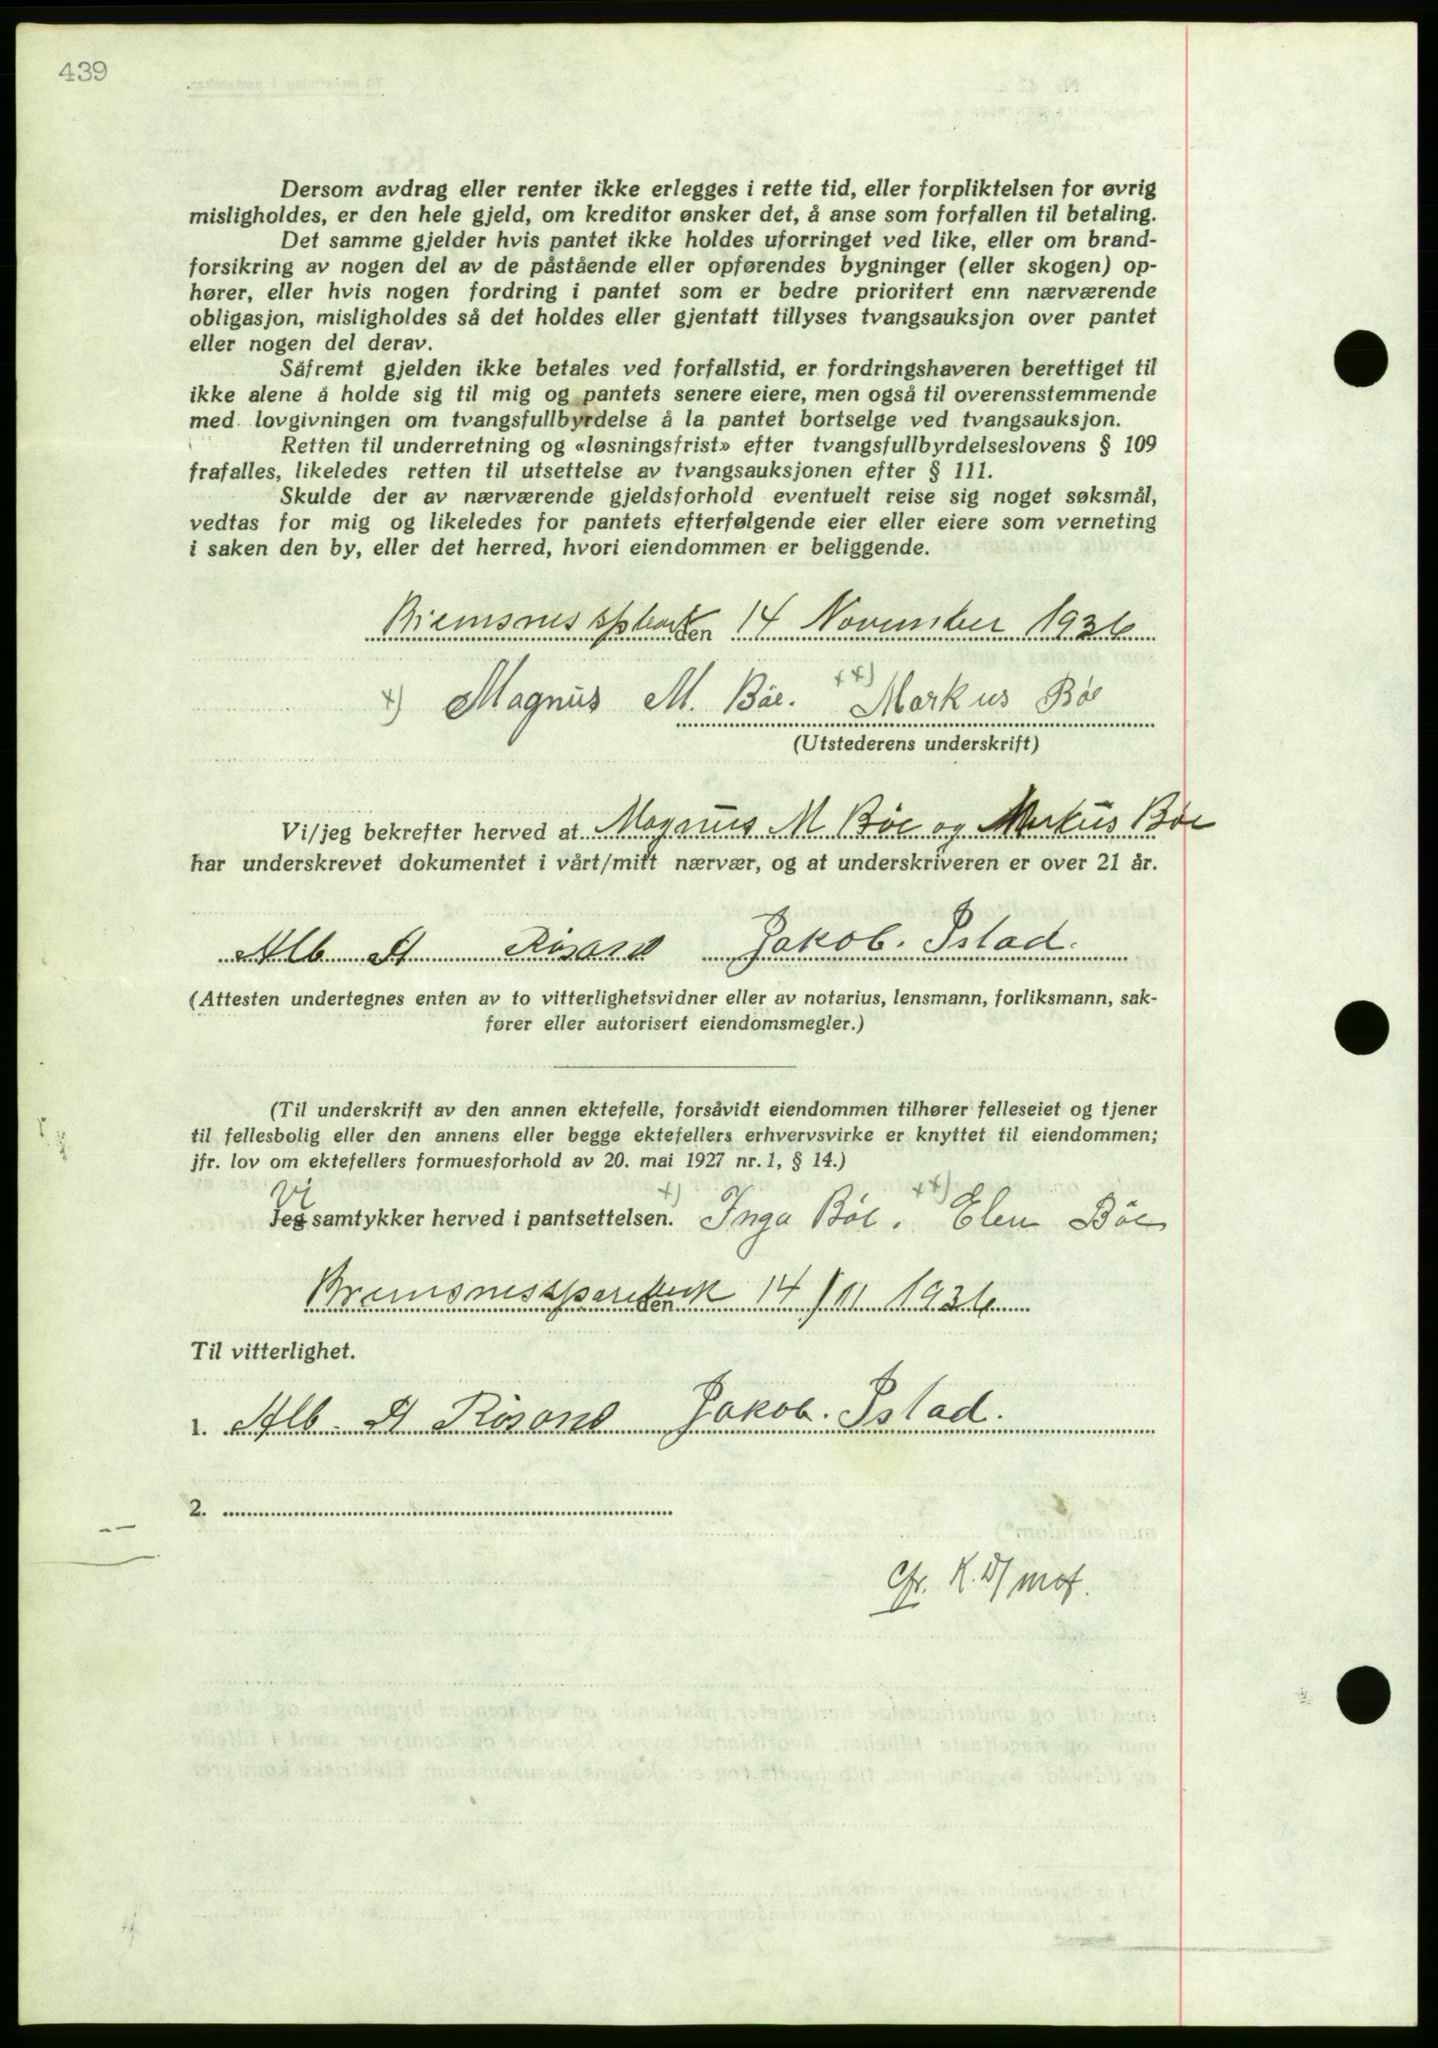 439
Dersom avdrag eller renter ikke erlegges i rette tid, eller forpliktelsen for øvrig
misligholdes, er den hele gjeld, om kreditor ønsker det, å anse som forfallen til betaling.
Det samme gjelder hvis pantet ikke holdes uforringet ved like, eller om brand-
forsikring av nogen del av de påstående eller opførendes bygninger (eller skogen) op-
hører, eller hvis nogen fordring i pantet som er bedre prioritert enn nærværende
obligasjon, misligholdes så det holdes eller gjentatt tillyses tvangsauksjon over pantet
eller nogen del derav.
Såfremt gjelden ikke betales ved forfallstid, er fordringshaveren berettiget til
ikke alene å holde sig til mig og pantets senere eiere, men også til overensstemmende
med lovgivningen om tvangsfullbyrdelse å la pantet bortselge ved tvangsauksjon.
Retten til underretning og «løsningsfrist» efter tvangsfullbyrdelseslovens § 109
frafalles, likeledes retten til utsettelse av tvangsauksjonen efter § 111.
Skulde der av nærværende gjeldsforhold eventuelt reise sig noget søksmål,
vedtas for mig og likeledes for pantets efterfølgende eier eller eiere som verneting
i saken den by, eller det herred, hvori eiendommen er beliggende.
Bremsnes spbank den 14 November 1936
x) Magnus M. Böe. xx) Markus Böe
(Utstederens underskrift)
Vi/jeg bekrefter herved at Magnus M Böe og Markus Böe
har underskrevet dokumentet i vårt/mitt nærvær, og at underskriveren er over 21 år.
Alb A Rösand Jakob. Istad.
(Attesten undertegnes enten av to vitterlighetsvidner eller av notarius, lensmann, forliksmann, sak-
fører eller autorisert eiendomsmegler.)
(Til underskrift av den annen ektefelle, forsåvidt eiendommen tilhører felleseiet og tjener
til fellesbolig eller den annens eller begge ektefellers erhvervsvirke er knyttet til eiendommen;
jfr. lov om ektefellers formuesforhold av 20. mai 1927 nr. 1, § 14.)
Vi
Jeg samtykker herved i pantsettelsen. x) Inga Böe. xx) Elen Böe
Bremsnes sparebank den 14/11 1936
Til vitterlighet.
1. Alb. A Rösand Jakob. Istad.
2.
Cfr. K.